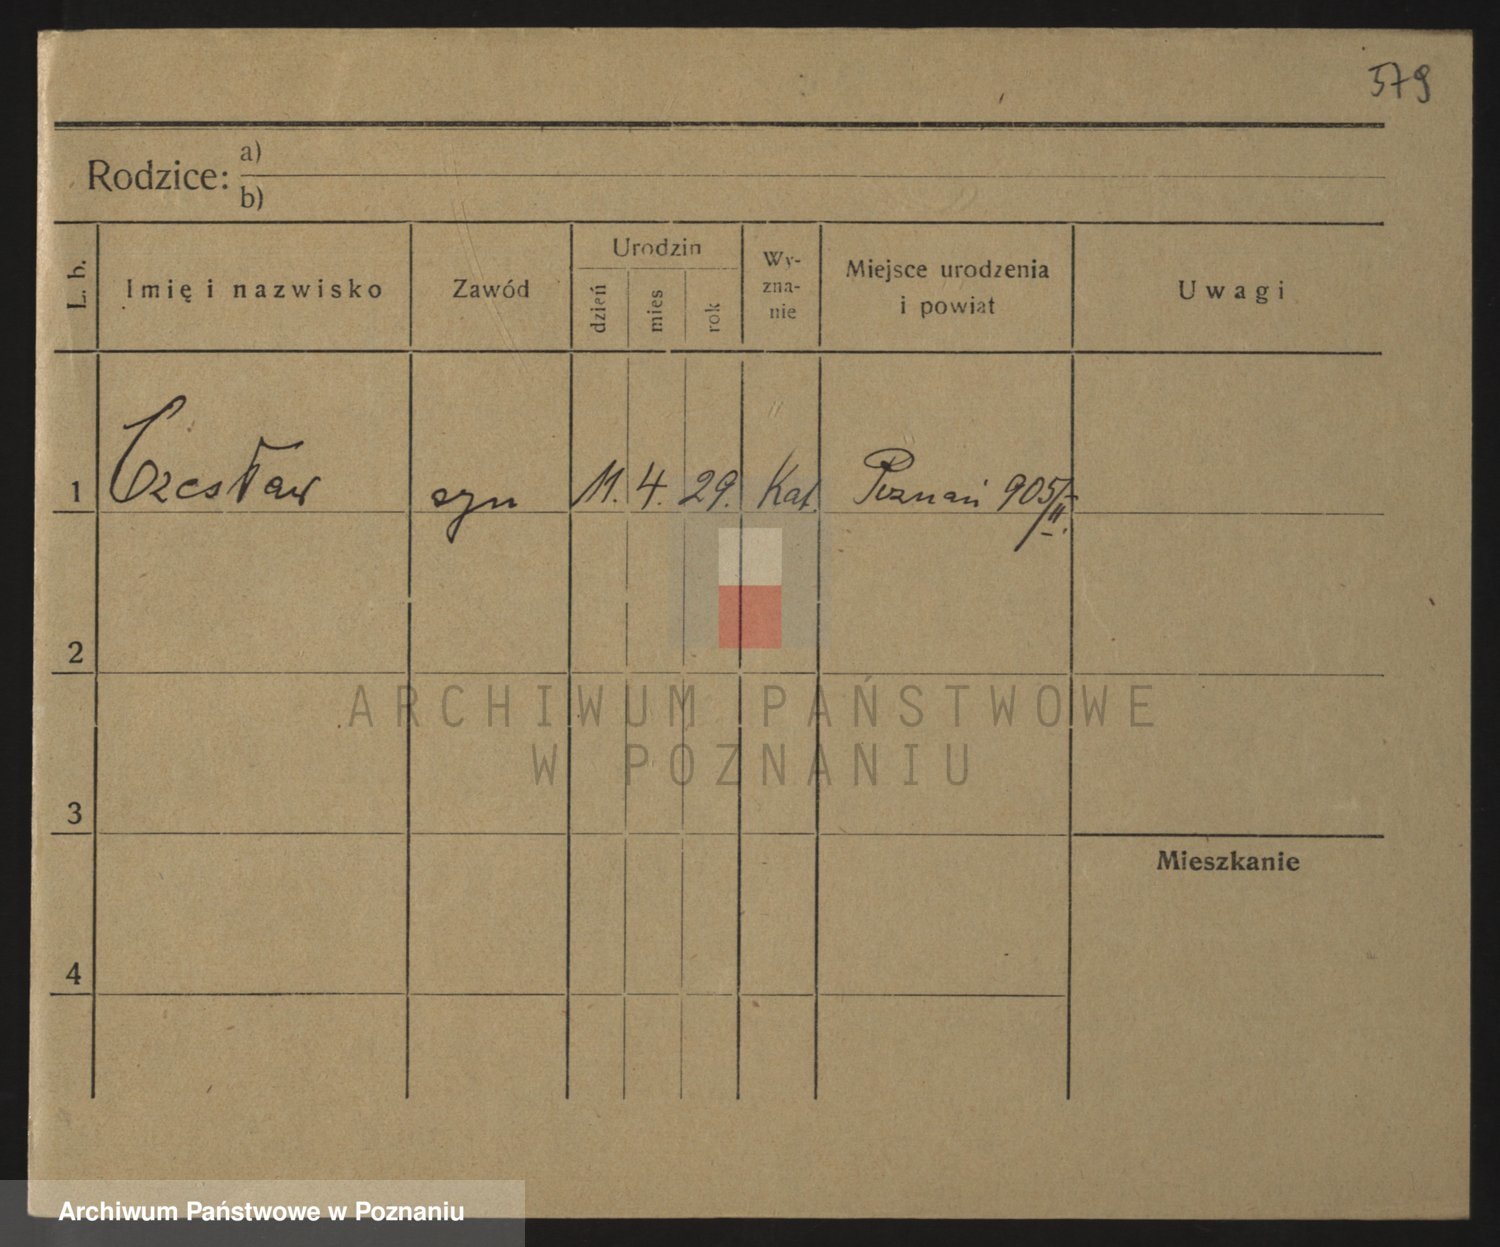 579
Rodzice: a)
b)
L. b.
Imię i nazwisko
Zawód
Urodzin
dzień
mies
rok
Wy-
zna-
nie
Miejsce urodzenia
i powiat
Uwagi
1 Czesław syn 11. 4. 29. Kat. Poznań 905/
II.
2
ARCHIWUM PAŃSTWOWE
W POZNANIU
3
Mieszkanie
4
Archiwum Państwowe w Poznaniu